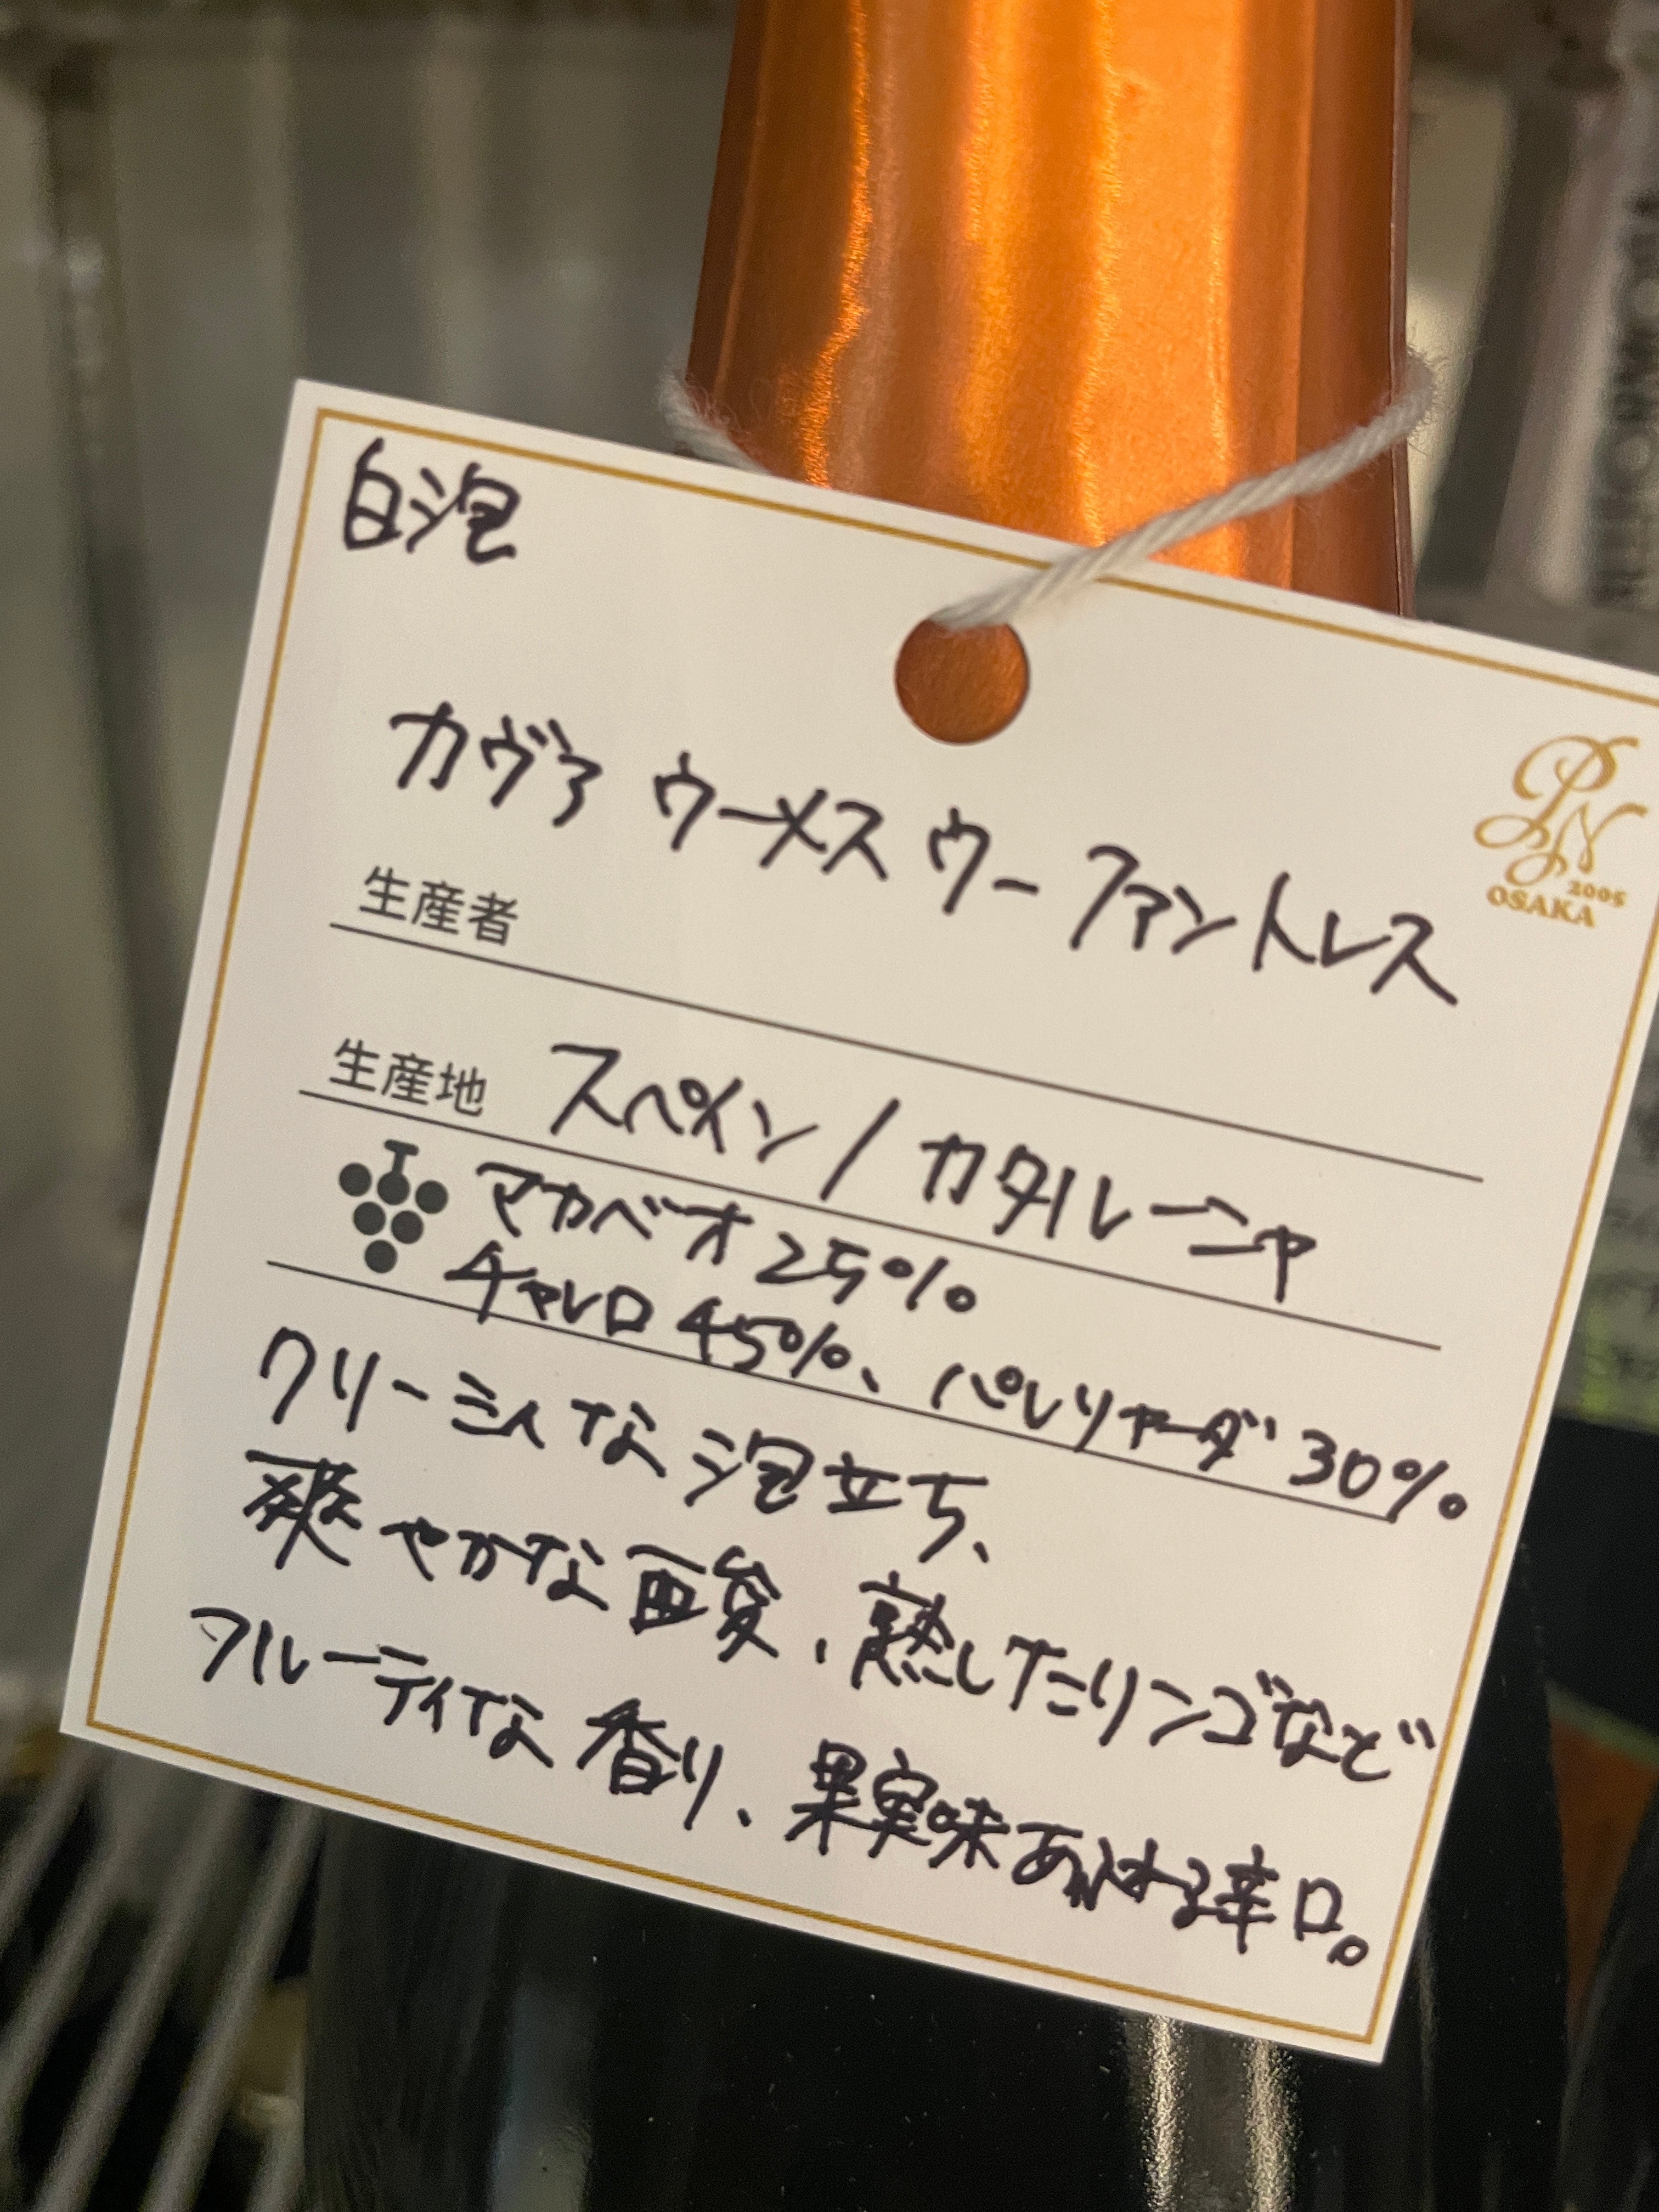 白泡
カヴァ ウーメス ウーファントレス
PN
2005
OSAKA
生産者
生産地 スペイン/カタルーニャ
マカベオ25%
チャレロ45%、パレリャーダ30%
クリーミーな泡立ち、
爽やかな酸、熟したリンゴなど
フルーティな香り、果実味あふれる辛口。